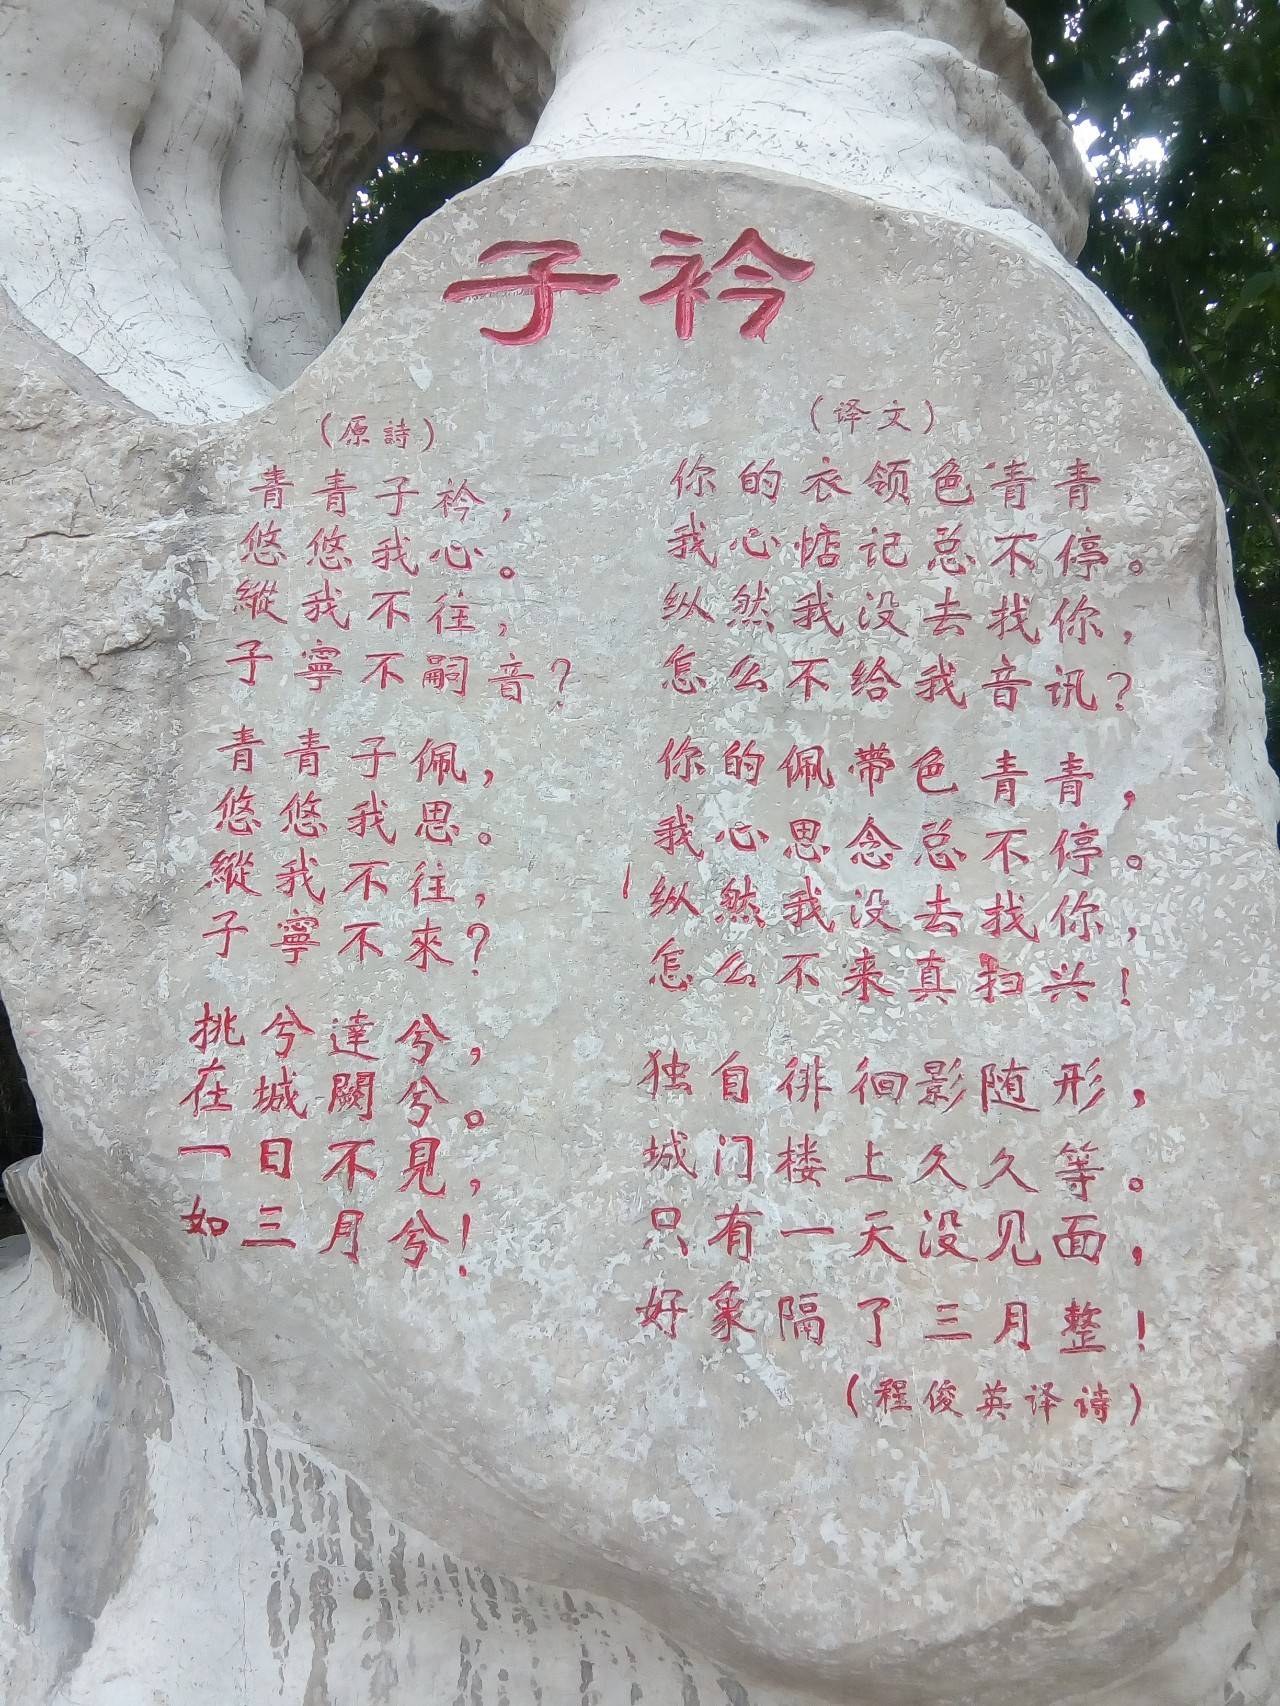 子衿
（原詩）
青青子衿，
悠悠我心。
縱我不往，
子寧不嗣音？
青青子佩，
悠悠我思。
縱我不往，
子寧不來？
挑兮達兮，
在城闕兮。
一日不見，
如三月兮！
（译文）
你的衣领色青青
我心惦记总不停。
纵然我没去找你，
怎么不给我音讯？
你的佩带色青青，
我心思念总不停。
纵然我没去找你，
怎么不来真扫兴！
独自徘徊影随形，
城门楼上久久等。
只有一天没见面，
好象隔了三月整！
（程俊英译诗）